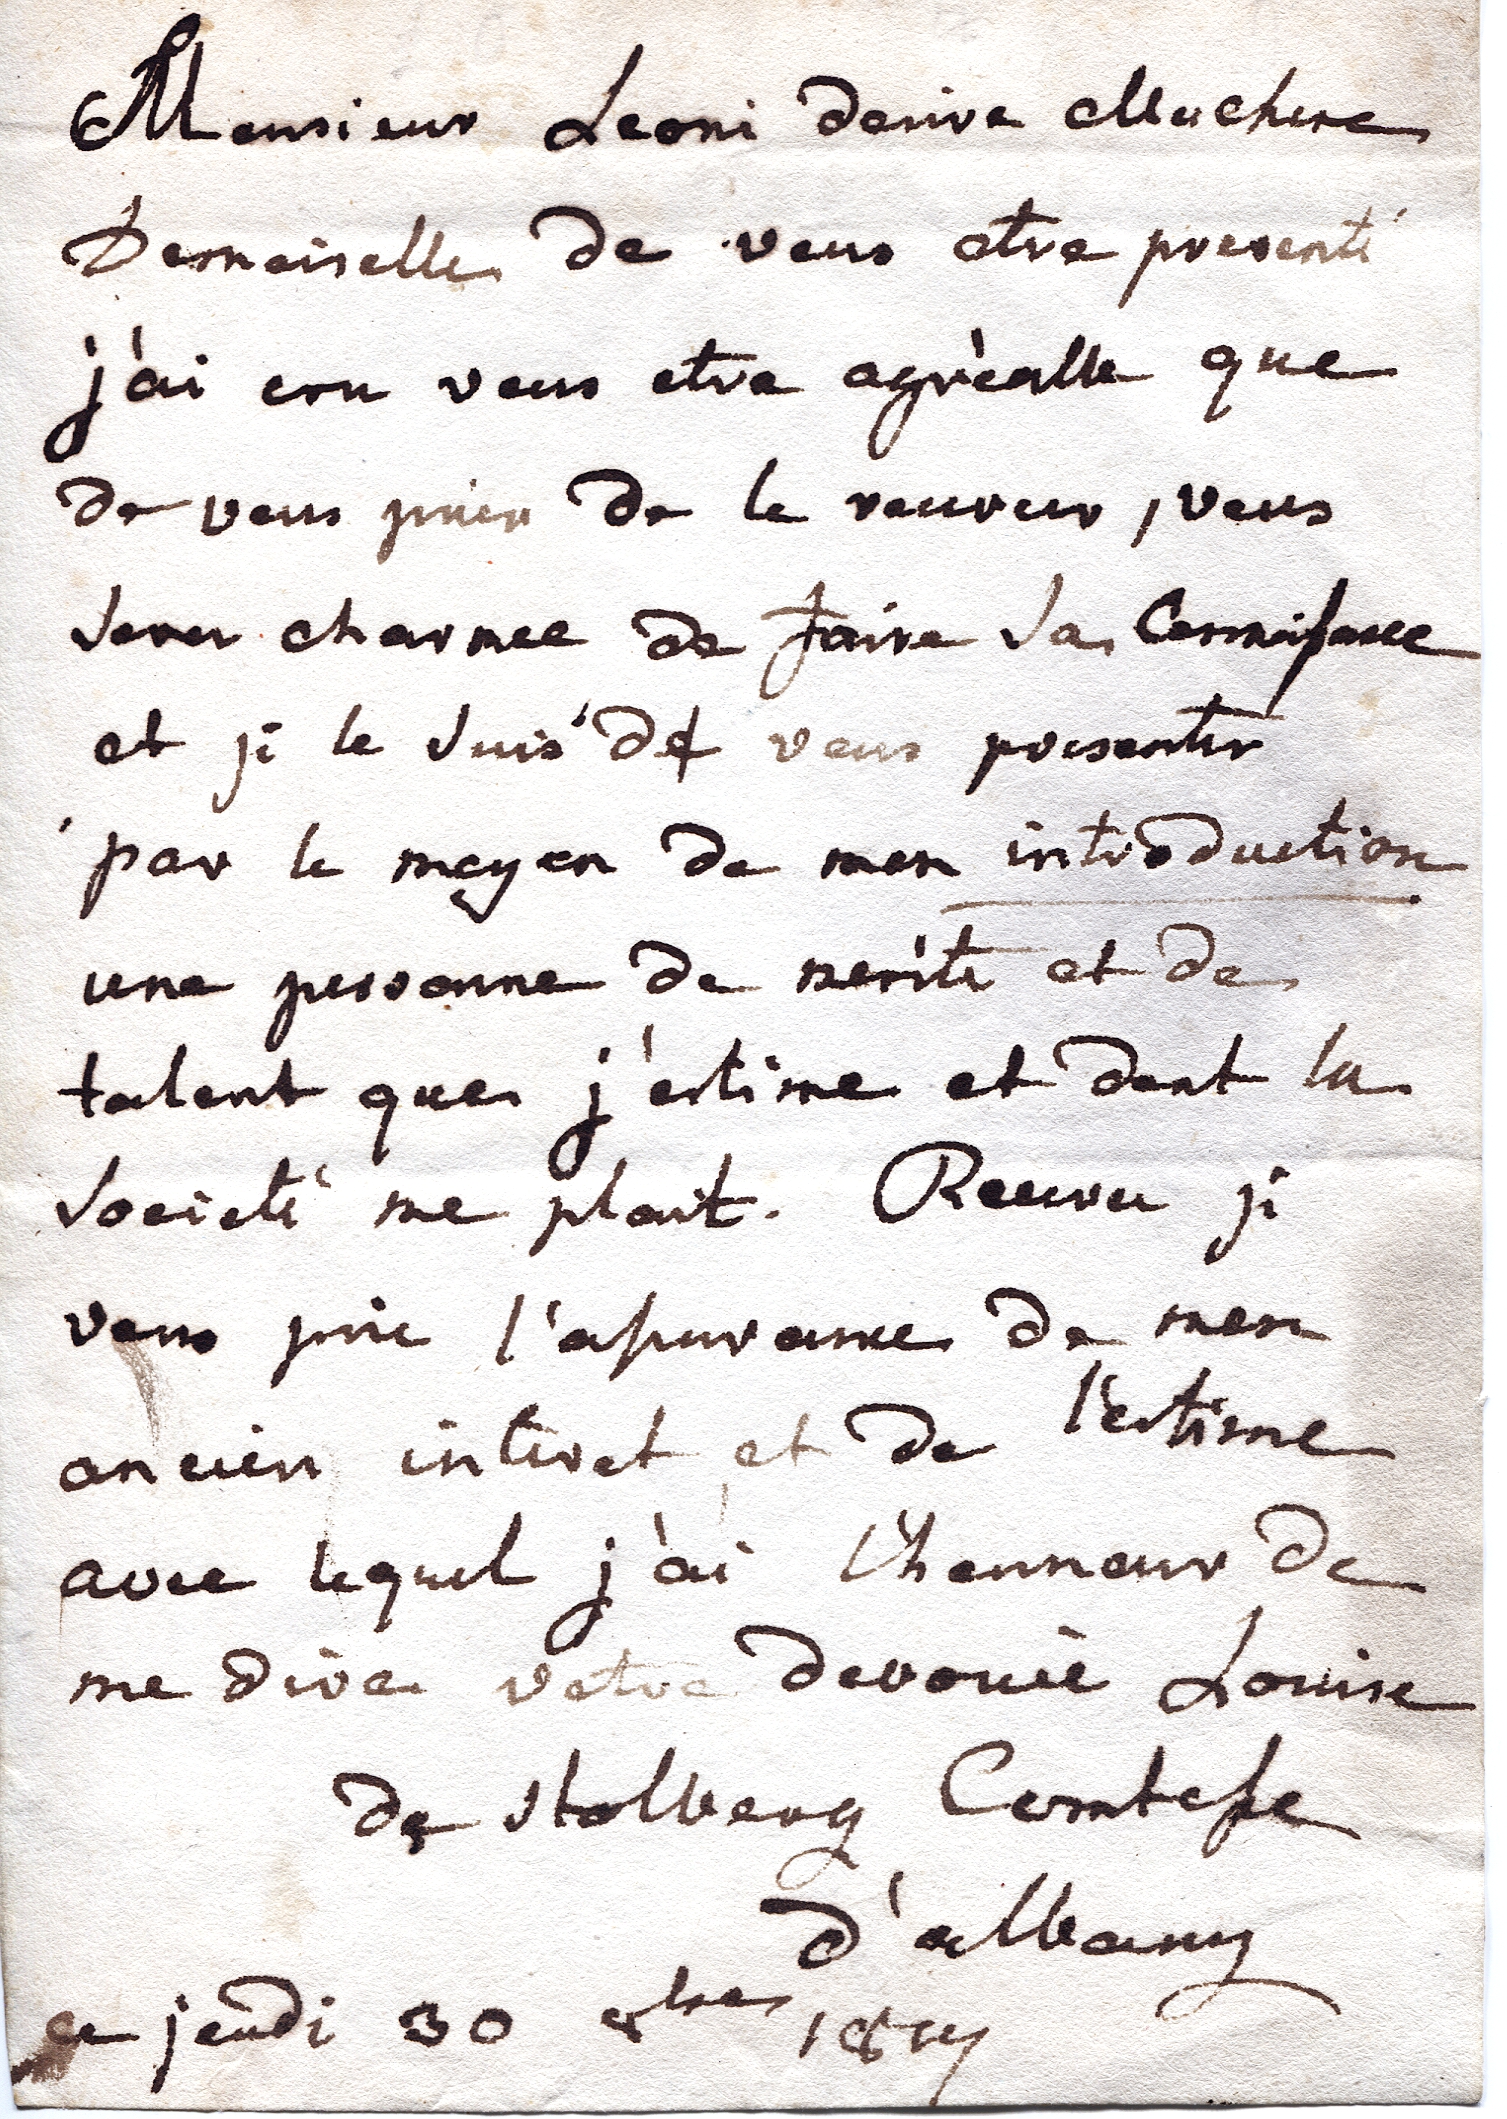 Monsieur Leoni desire Ma chere
Demoiselle de vous etre presenté
j'ai cru vous etre agréable que
de vous prier de le recevoir, vous
serez charmée de faire sa Connoissance
et je le suis de vous presenter
par le moyen de mon introduction
une personne de merite et de
talent que j'estime et dont la
societé me plait. Recevez je
vous prie l'assurance de mon
ancien interet et de l'estime
avec lequel j'ai l'honneur de
me dire votre devouée Louise
de Stolberg Comtesse
d'albany
ce jeudi 30 8bre